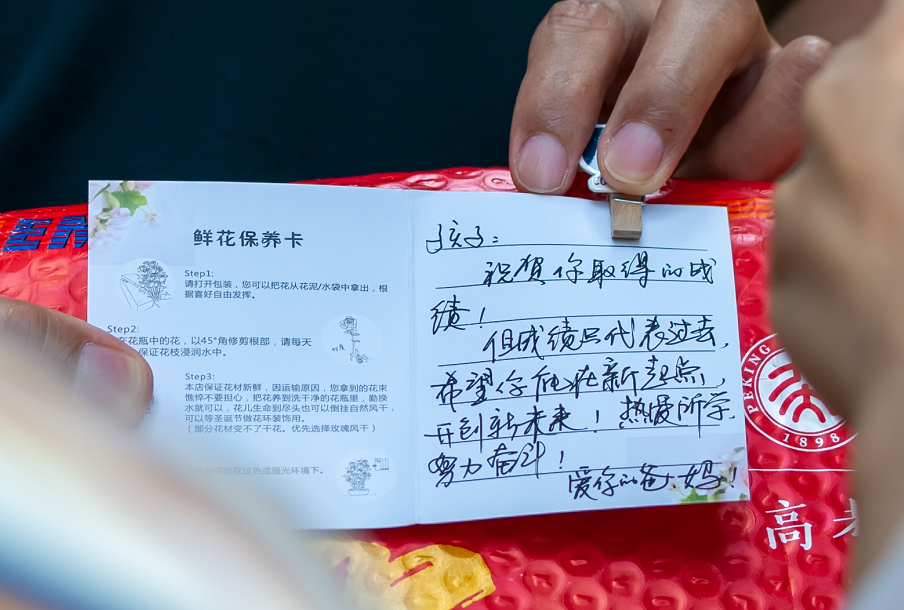 鲜花保养卡
Step1:
请打开包装，您可以把花从花泥/水袋中拿出，根
据喜好自由发挥。
Step2:
在花瓶中的花，以45°角修剪根部，请每天
保证花枝浸润水中。
Step3:
本店保证花材新鲜，因运输原因，您拿到的花束
憔悴不要担心，把花养到洗干净的花瓶里，勤换
水就可以，花儿生命到尽头也可以倒挂自然风干，
可以等圣诞节做花环装饰用。
（部分花材变不了干花。优先选择玫瑰风干）
过热或强光环境下。
孩子：
祝贺你取得的成
绩！
但成绩只代表过去，
希望你能在新起点，
开创新未来！热爱所学
努力奋斗！
爱你的爸、妈！
PEKING
1898
高考